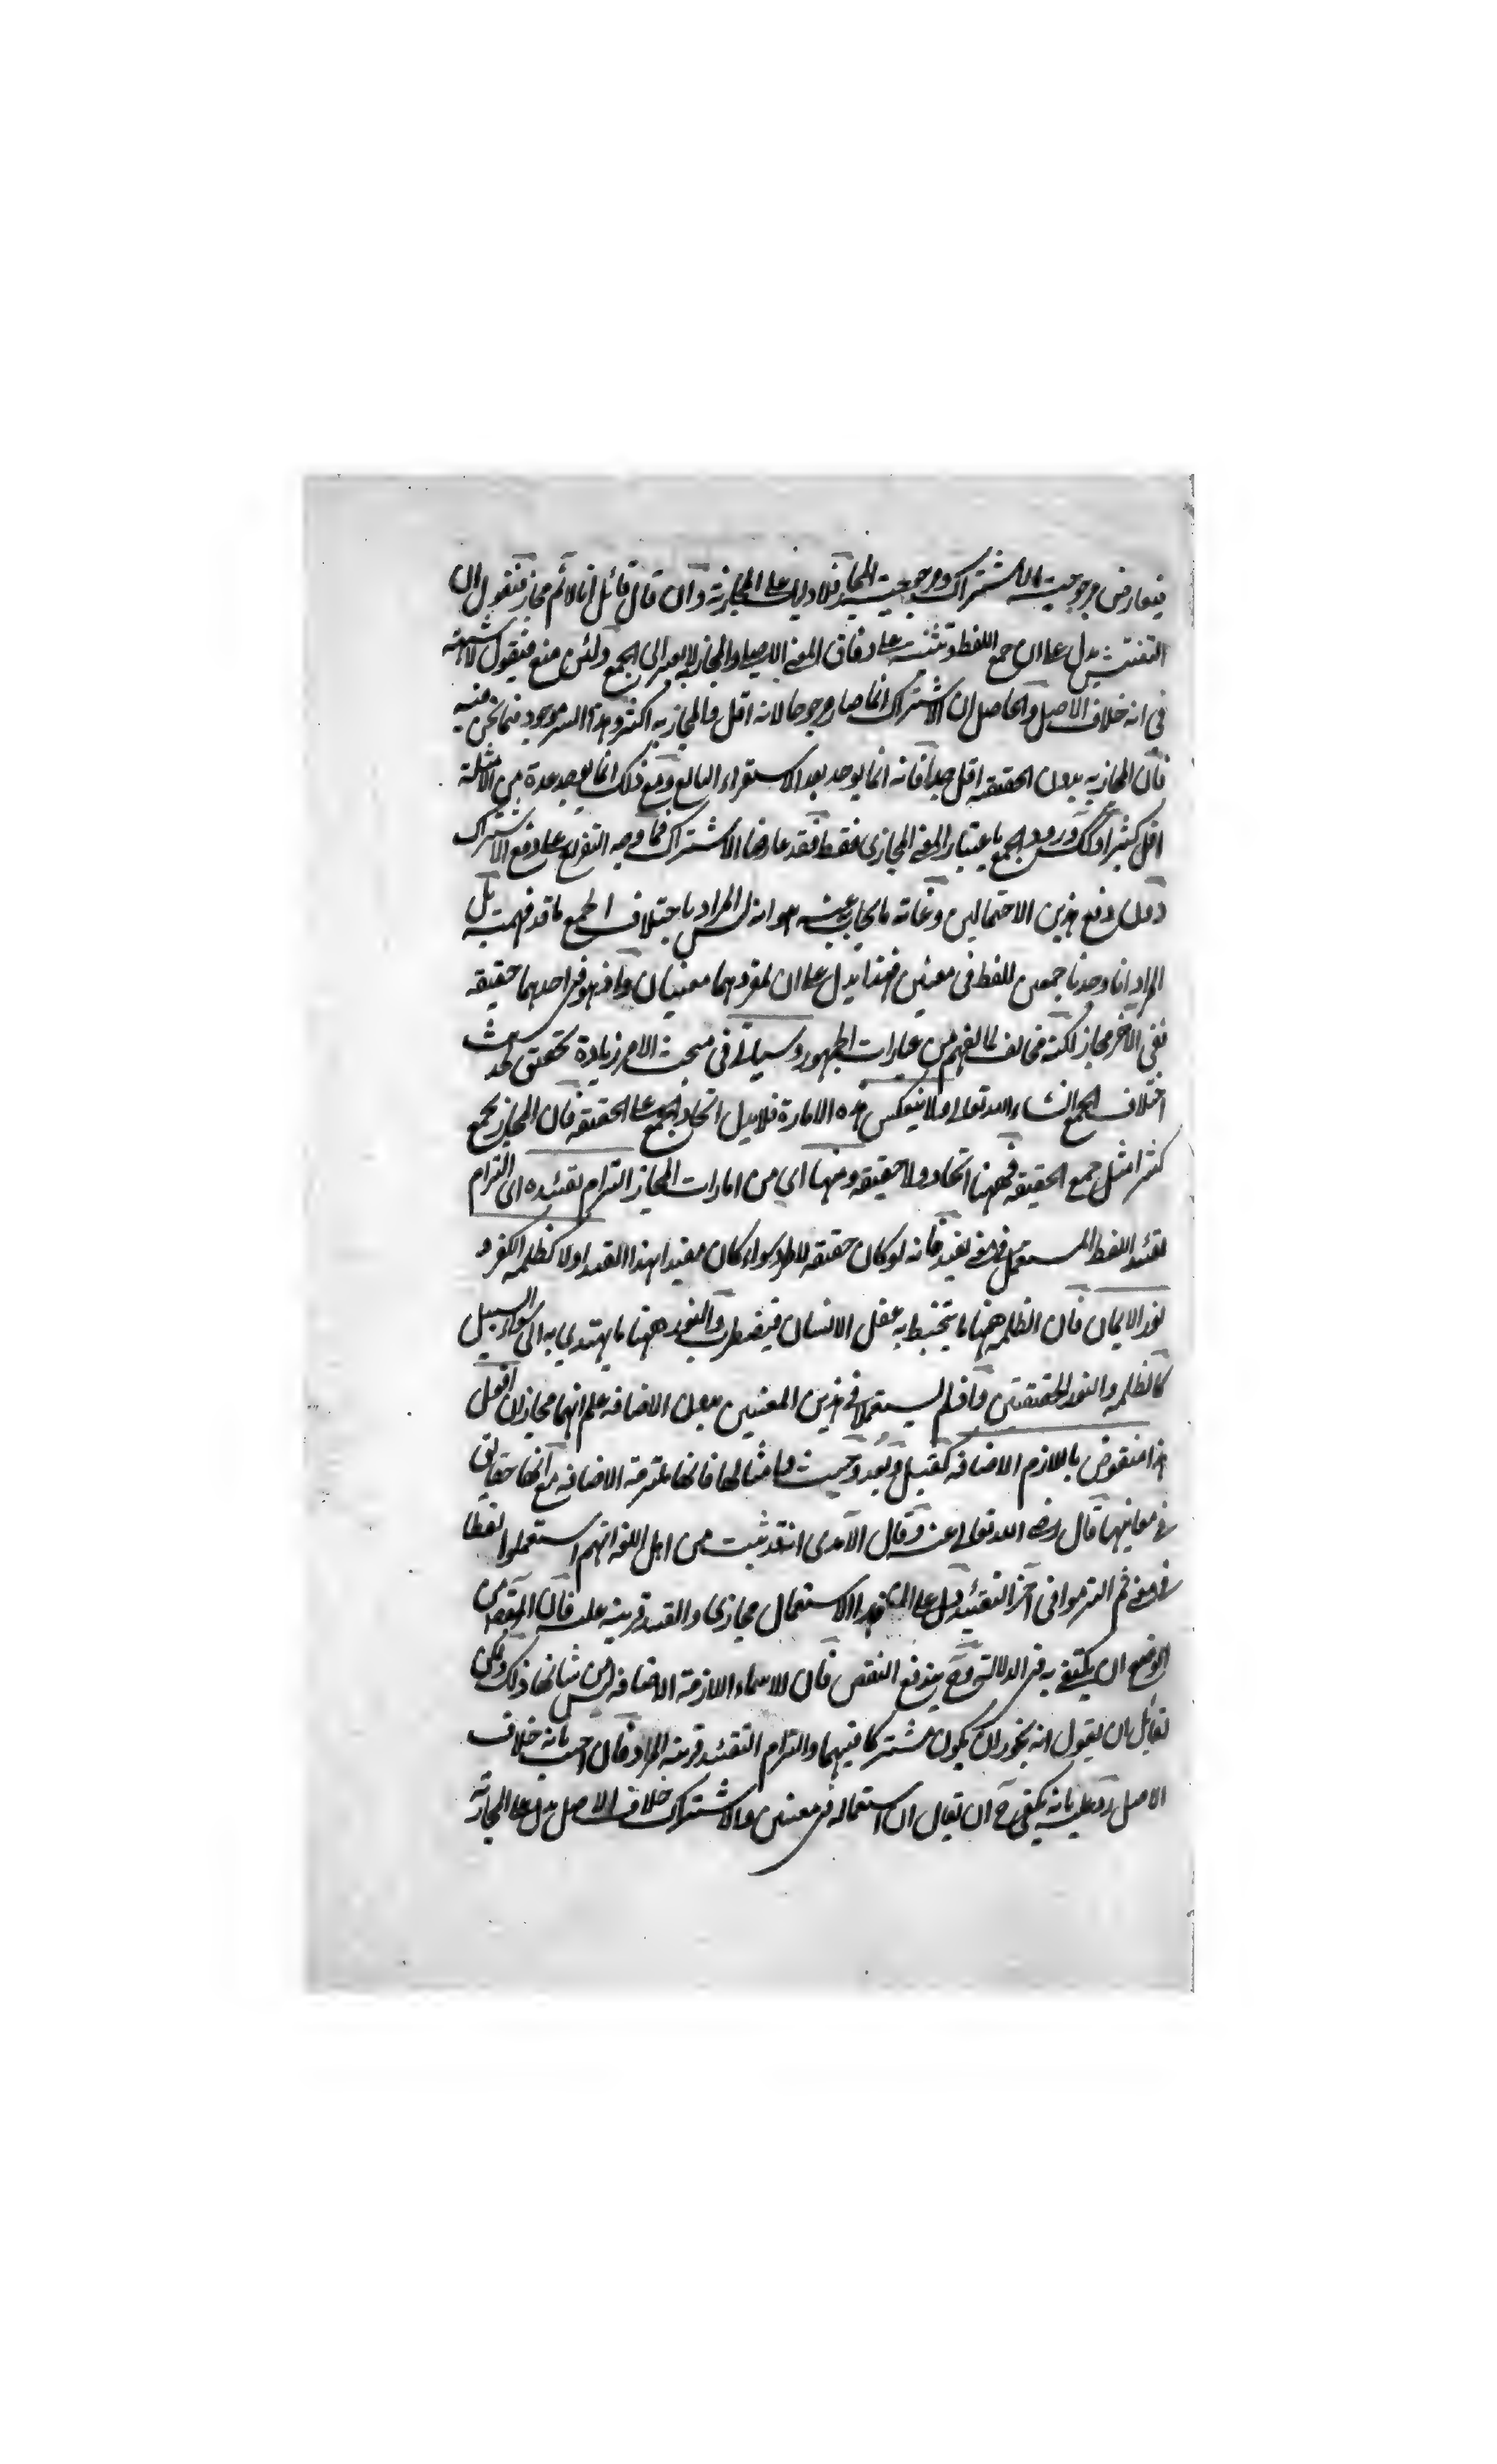 فيعارض مرجوحية الاشتراك ومرجوحية المجاز فلا دليل على المجازية وان قال قائل انا لا نم مجاز فنقول ان
التفتيش يدل على ان جمع اللفظ وتثنيته على وفاق المعنى الاصلي والمجاز لا يغير الى الجمع ولئن منع فنقول لا شبهة
في انه خلاف الاصل والحاصل ان الاشتراك انما صار مرجوحا لانه اقل والمجازية اكثر وهذا السر موجود فيما نحن فيه
فان المجازية بدون الحقيقة اقل جدا فانه انما يوجد بعد الاستقراء البالغ ومع ذلك انما يوجد عدة من الامثلة
اقل كثيرا وكذلك ورود الجمع باعتبار المعنى المجازي فقط فقد عارضا الاشتراك فما وجه التفريع على دفع الاشتراك
دون دفع هذين الاحتمالين وغاية ما يجاب عنه هو انه ليس المراد باختلاف الجمع ما قد فهمت بل
المراد انا وجدنا جمعين للفظ في معنيين فهذا يدل على ان لمفردهما معنيان واذ هو في احدهما حقيقة
ففي الآخر مجاز لكنه مخالف لما يفهم من عبارات الجمهور وسيأتي في مبحث الامر زيادة تحقيق لحديث
اختلاف الجمع انشاء الله تعالى ولا ينعكس هذه الامارة فلا يدل اتحاد الجمع على الحقيقة فان المجاز يجمع
كثيرا مثل جمع الحقيقة فههنا اتحاد ولا حقيقة ومنها اي من امارات المجاز التزام تقييده اي التزام
تقييد اللفظ المستعمل في معنى بقيد فانه لو كان حقيقة لاطرد سواء كان مقيدا بهذا القيد اولا كظلمة الكفر و
نور الايمان فان الظلمة ههنا ما يتخبط به عقل الانسان فيضطرب والنور ههنا ما يهتدي به الى سواء السبيل
كالظلمة والنور الحقيقتين واذ لم يستعملا في هذين المعنيين بدون الاضافة علم انهما مجازان اقول
هذا منقوض باللازم الاضافة كقبل وبعد وحيث وامثالها فانها ملتزمة الاضافة مع انها حقائق
في معانيها قال رضي الله تعالى عنه وقال الآمدي انه قد ثبت من اهل اللغة انهم استعملوا لفظا
في معنى ثم التزموا في آخر التقييد دل على ان هذا الاستعمال مجازي والقيد قرينة عليه فان المقصد من
الوضع ان يكتفى به في الدلالة وح يندفع النقض فان الاسماء اللازمة الاضافة ليس من شانها ذلك ولكن
لقائل ان يقول انه يجوز ان يكون مشتركا فيهما والتزام التقييد قرينة المراد فان اجيب بانه خلاف
الاصل رد عليه بانه يكفي ح ان يقال ان استعماله في معنيين والاشتراك خلاف الاصل يدل على المجازية